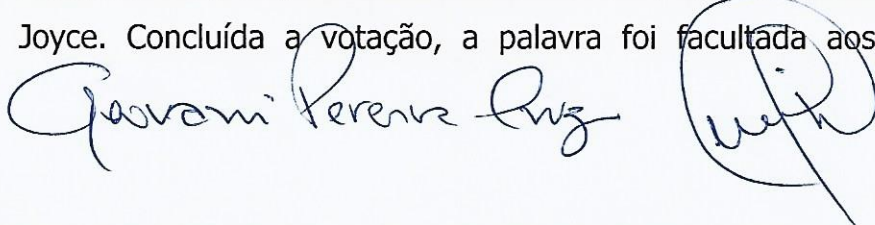 Joyce. Concluída a votação, a palavra foi facultada aos
Giovani Pereira Cruz